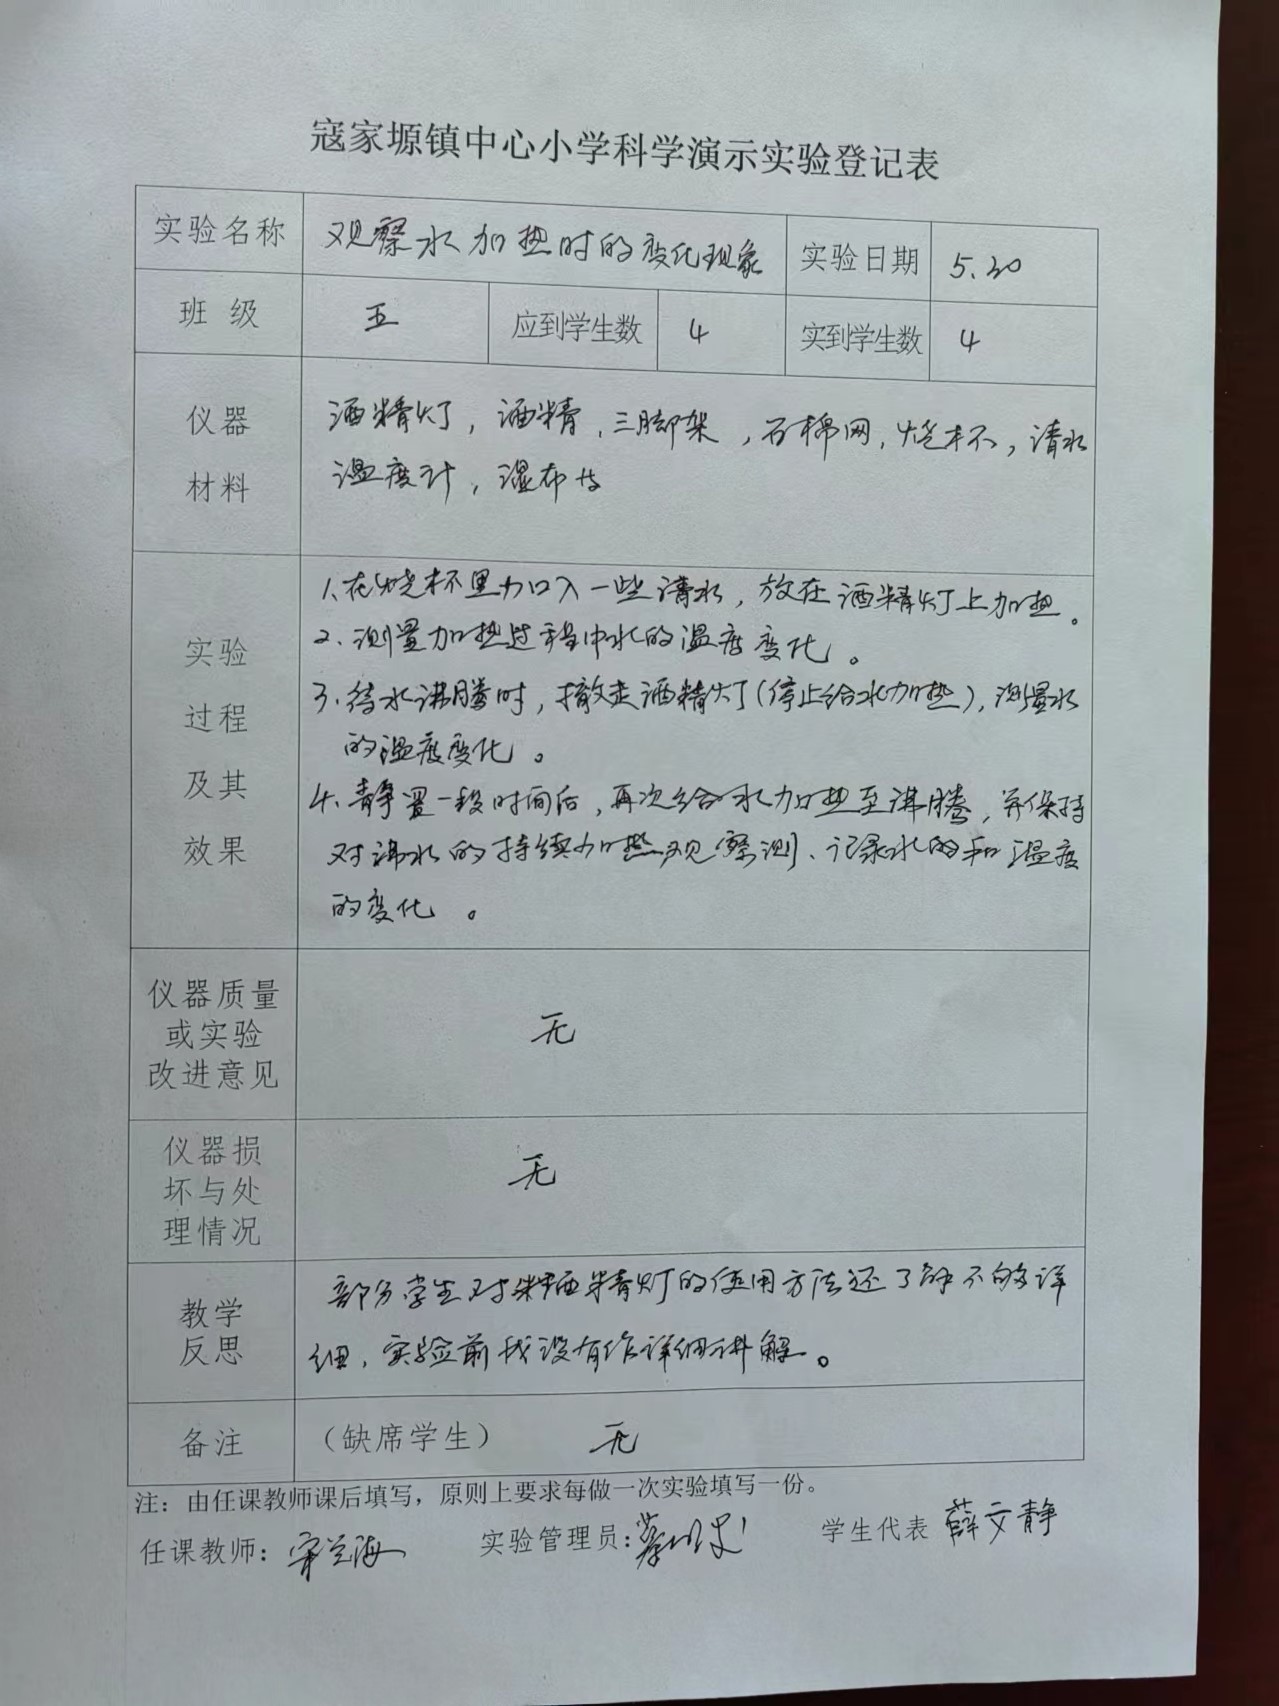 寇家塬镇中心小学科学演示实验登记表
实验名称 观察水加热时的变化现象 实验日期 5.20
班 级 五 应到学生数 4 实到学生数 4
仪器
材料
酒精灯，酒精，三脚架，石棉网，烧杯，清水
温度计，湿布
实验
过程
及其
效果
1、在烧杯里加入一些清水，放在酒精灯上加热。
2、测量加热过程中水的温度变化。
3、待水沸腾时，撤走酒精灯(停止给水加热)，测量水
的温度变化。
4、静置一段时间后，再次给水加热至沸腾，并保持
对沸水的持续加热观察测、记录水的和温度
的变化 。
仪器质量
或实验
改进意见
无
仪器损
坏与处
理情况
无
教学
反思
部分学生对酒精灯的使用方法还了解不够详
细，实验前我没有作详细讲解。
备注 （缺席学生） 无
注：由任课教师课后填写，原则上要求每做一次实验填写一份。
任课教师： 实验管理员： 学生代表 薛文静